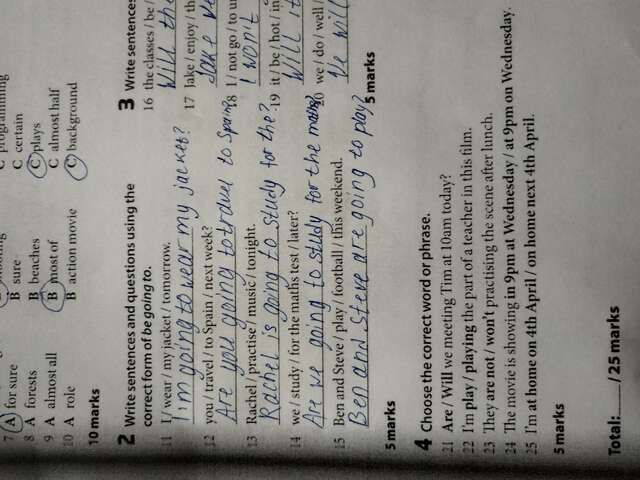 C programming
B sure C certain
7 A for sure
8 A forests B beaches C plays
9 A almost all B most of C almost half
10 A role B action movie C background
10 marks
2 Write sentences and questions using the
correct form of be going to.
11 I / wear / my jacket / tomorrow.
I'm going to wear my jacket?
12 you / travel / to Spain / next week?
Are you going to travel to Spain?
13 Rachel / practise / music / tonight.
Rachel is going to study for the?
14 we / study / for the maths test / later?
Are we going to study for the maths?
15 Ben and Steve / play / football / this weekend.
Ben and Steve are going to play?
5 marks
3 Write sentences
16 the classes / be /
Will the
17 Jake / enjoy / th
Jake
18 I / not go / to un
I won't
19 it / be / hot / in
Will it
20 we / do / well /
We will
5 marks
4 Choose the correct word or phrase.
21 Are / Will we meeting Tim at 10am today?
22 I'm play / playing the part of a teacher in this film.
23 They are not / won't practising the scene after lunch.
24 The movie is showing in 9pm at Wednesday / at 9pm on Wednesday.
25 I'm at home on 4th April / on home next 4th April.
5 marks
Total: / 25 marks